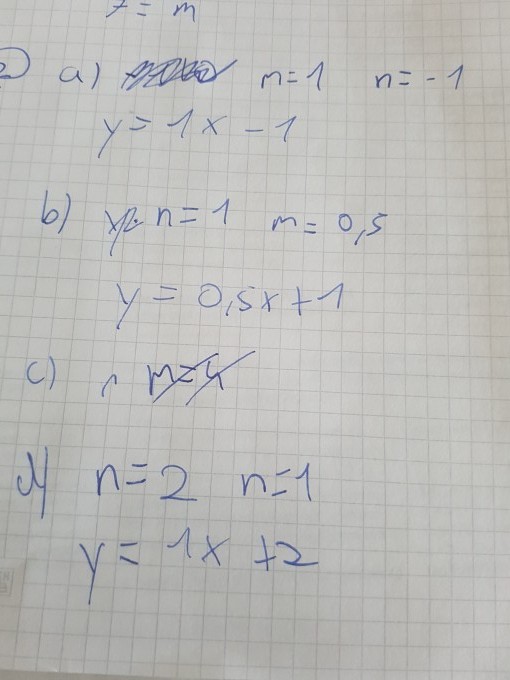 = m
2) a) m=1 n=-1
y=1x-1
b) n=1 m=0,5
y=0,5x+1
c) m=4
d) n=2 n=1
y=1x+2